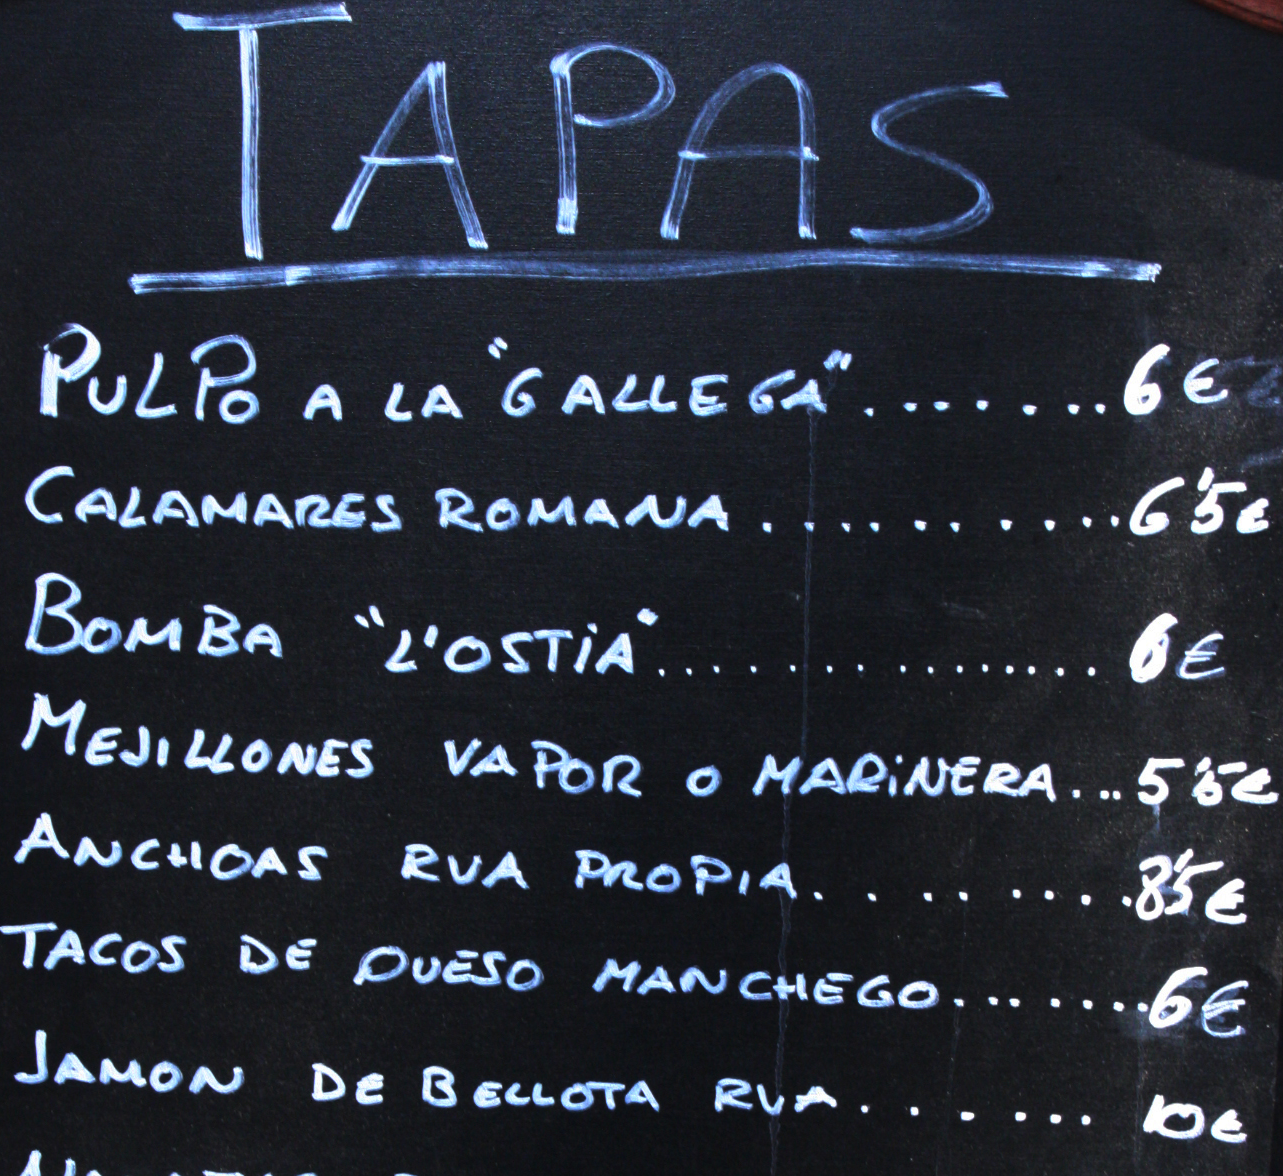 TAPAS
PULPO A LA "GALLEGA"........6€
CALAMARES ROMANA..........6'5€
BOMBA "L'OSTIA"..............6€
MEJILLONES VAPOR O MARINERA...5'5€
ANCHOAS RVA PROPIA........8'5€
TACOS DE QUESO MANCHEGO.......6€
JAMON DE BELLOTA RVA.......10€